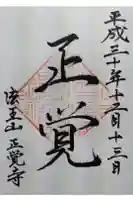 平成三十年十二月十三日
正覚
法王山 正覺寺